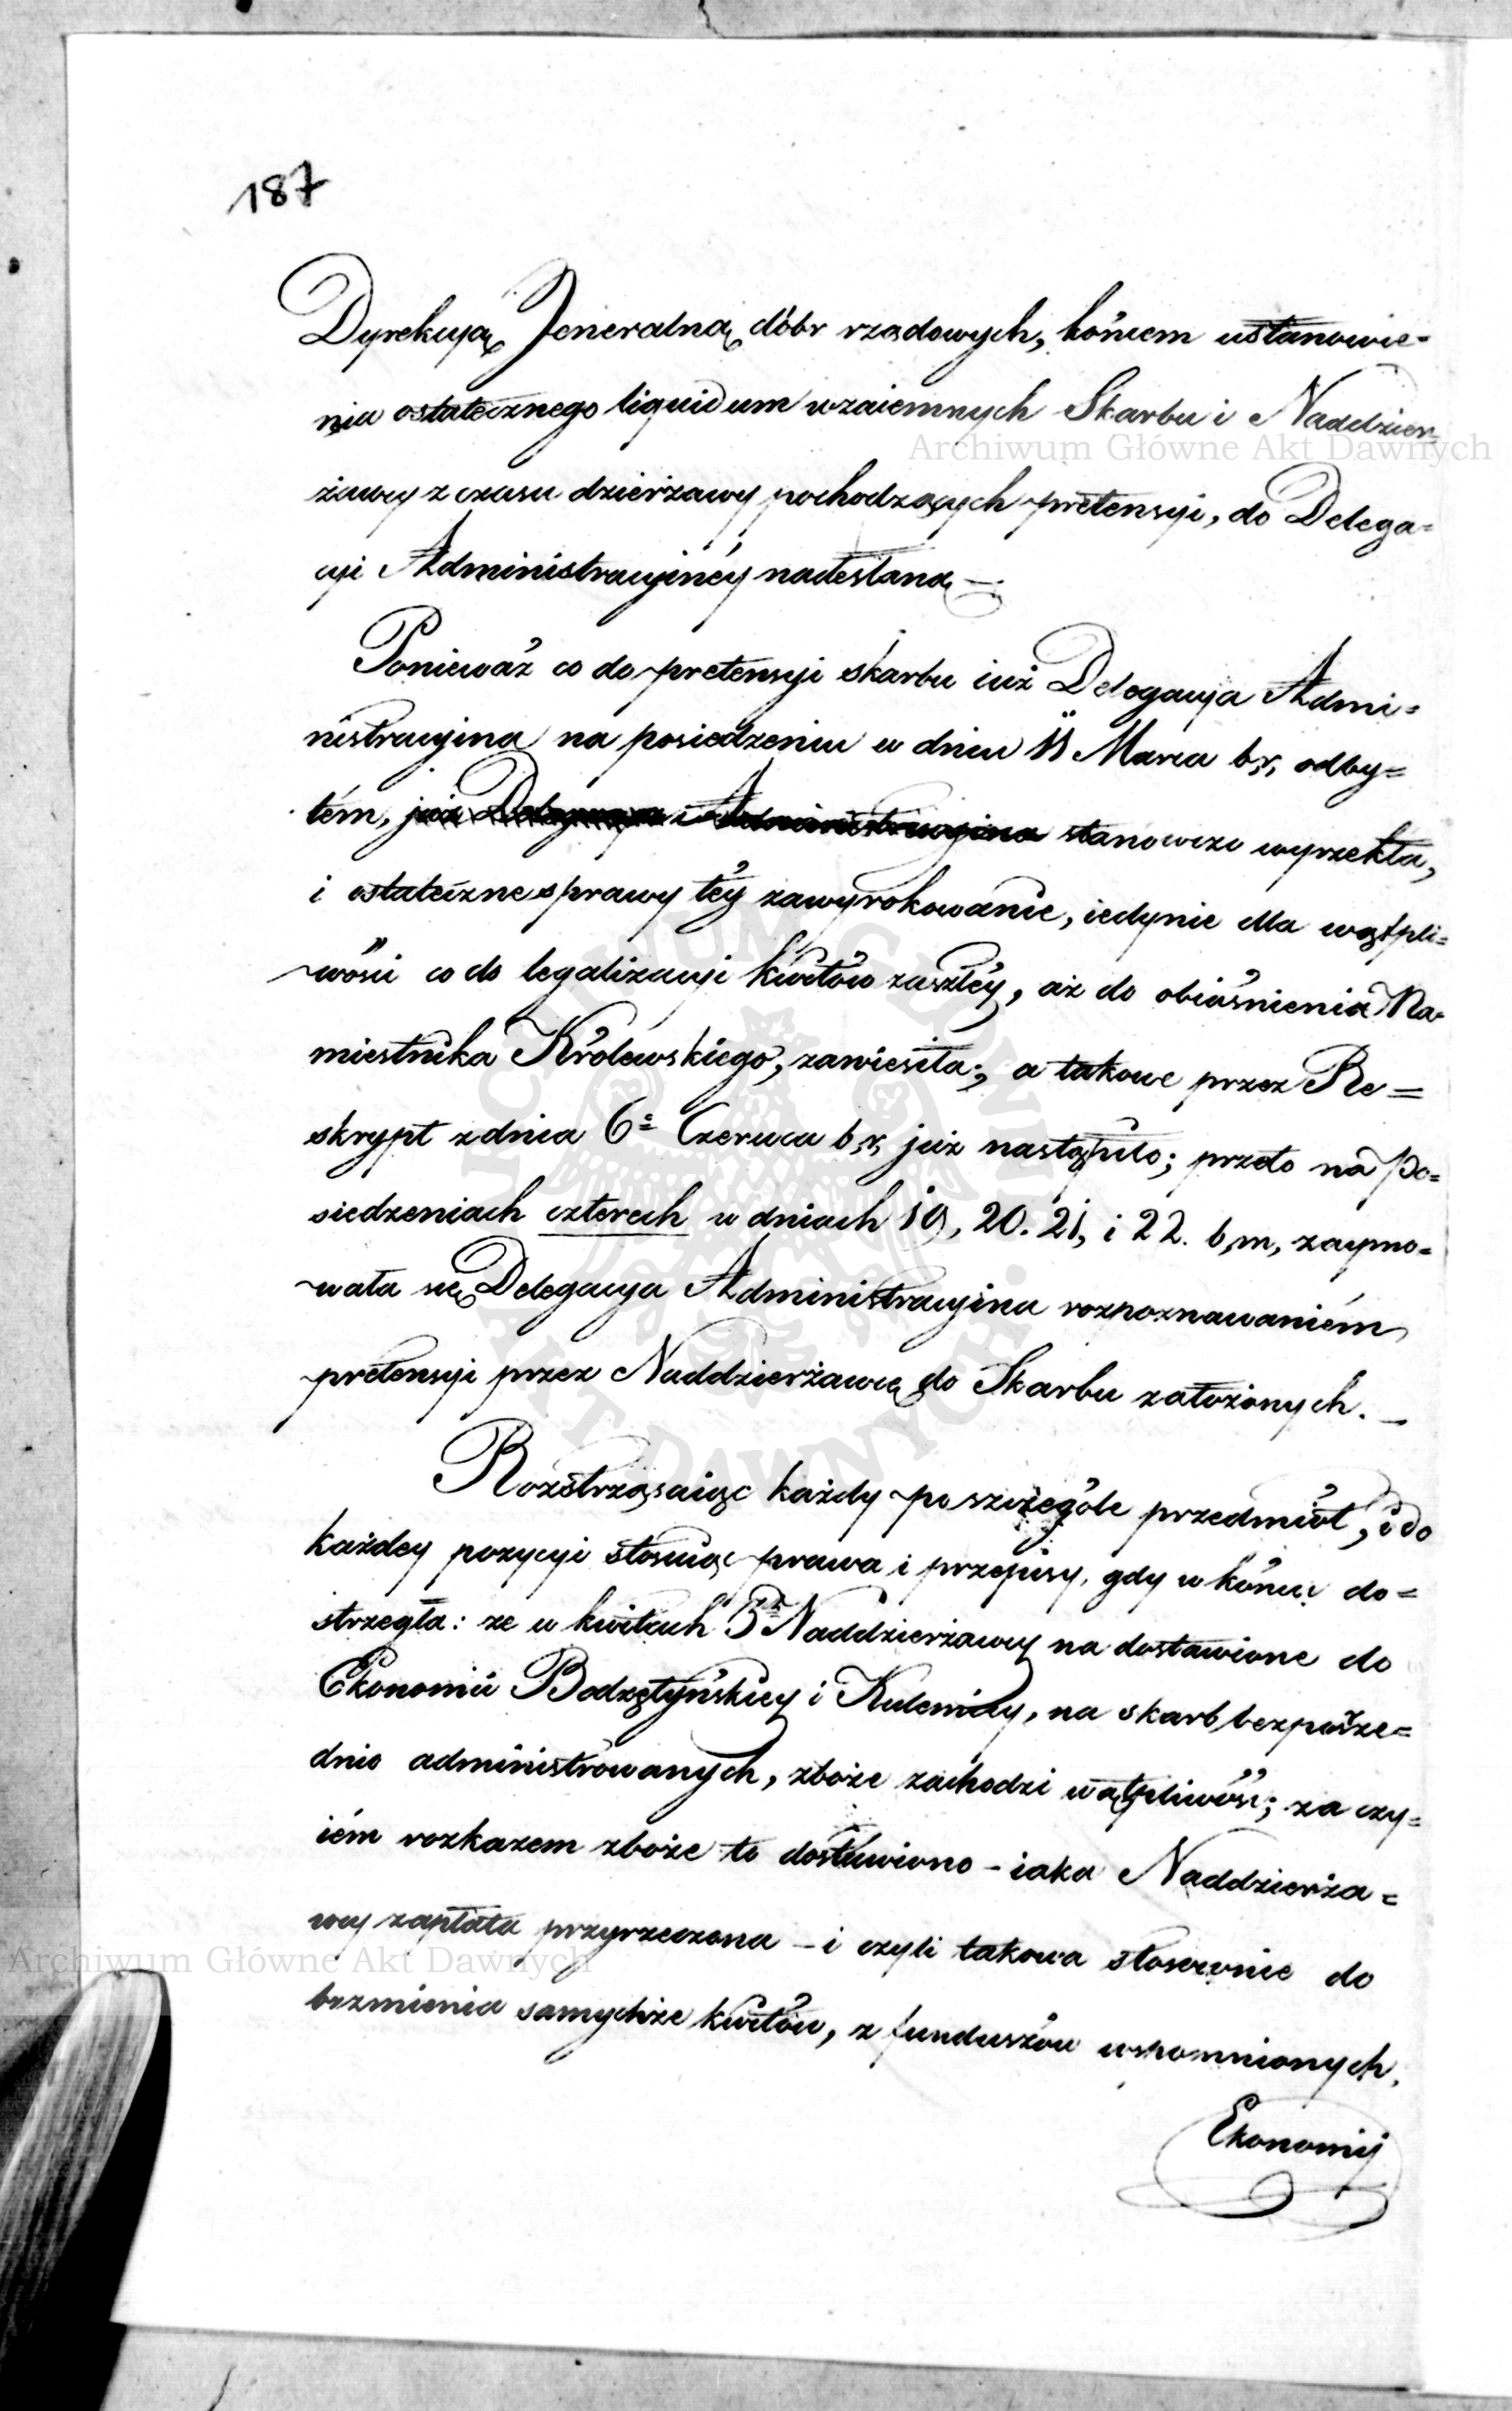 187
Dyrekcyą Jeneralną dóbr rządowych, końcem ustanowie=
nia ostatecznego liquidum wzaiemnych Skarbu i Naddzier=
żawcy z czasu dzierżawy pochodzących pretensyi, do Delega=
cyi Administracyinéy nadesłaną —.
Ponieważ co do pretensyi skarbu iuż Delegacya Admi=
nistracyina na posiedzeniu w dniu 11 Marca b,r, odby=
tém, już Delegacya Administracyina stanowczo wyrzekła,
i ostateczne sprawy téy zawyrokowanie, iedynie dla wątpli=
wości co do legalizacyi kwitów zaszłéy, aż do obiaśnienia Na=
miestnika Królewskiego, zawiesiła; a takowe przez Re=
skrypt z dnia 6º Czerwca b,r, już nastąpiło; przeto na po=
siedzeniach czterech w dniach 19, 20. 21, i 22. b,m, zaymo=
wała się Delegacya Administracyina rozpoznawaniém
pretensyi przez Naddzierżawcę do Skarbu założonych. —
Rozstrząsaiąc każdy po szczególe przedmiot, i do
każdey pozycyi stosuiąc prawa i przepisy, gdy w końcu do=
strzegła: że w kwitach Naddzierżawcy na dostawione do
Ekonomii Bodzętyńskiey i, na skarb bezpośre=
dnio administrowanych, zboże zachodzi wątpliwość; za czy=
iém rozkazem zboże to dostawiono – iaka Naddzierża=
wcy zapłata przyrzeczona – i czyli takowa stosownie do
brzmienia samychże kwitów, z funduszów wspomnionych,
Ekonomij
Archiwum Główne Akt Dawnych
Archiwum Główne Akt Dawnych
ARCHIWUM GŁÓWNE AKT DAWNYCH